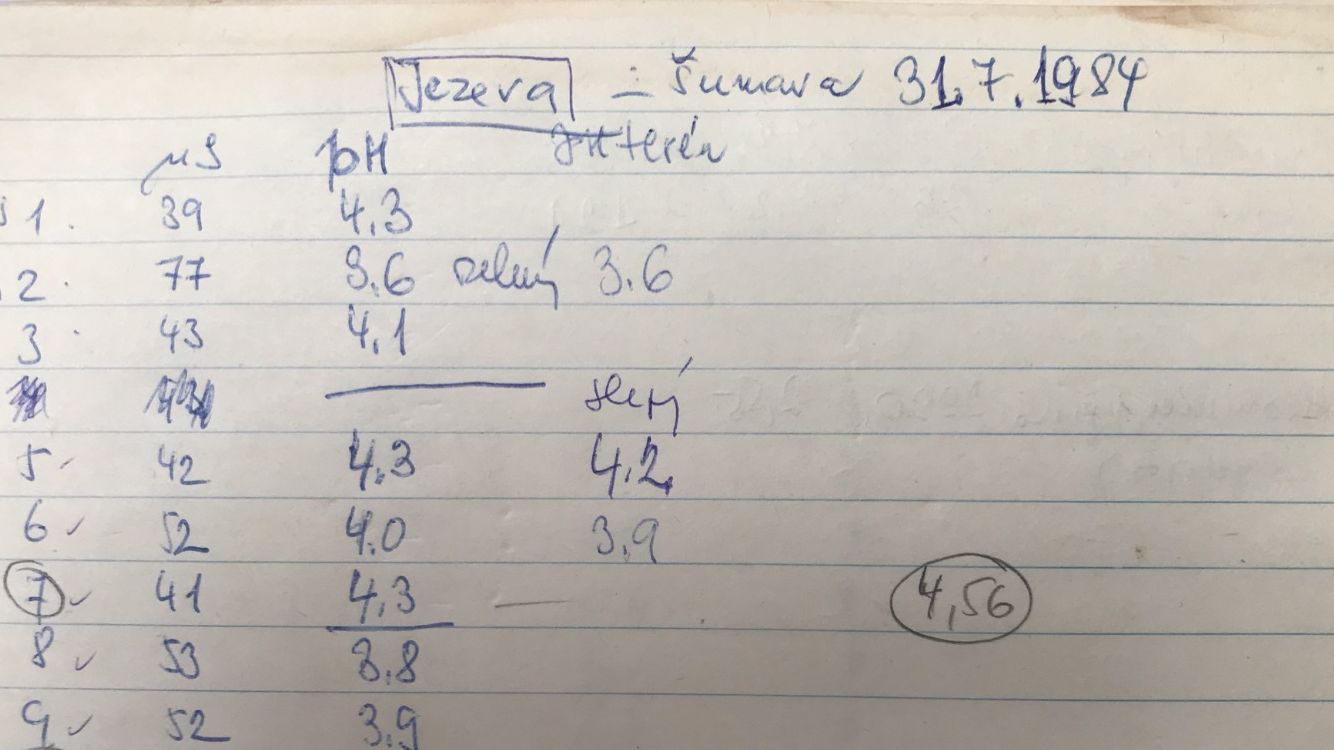 Jezera - Šumava 31.7.1984
µS pH terén
1. 39 4.3
2. 77 3.6 zelený 3.6
3 43 4.1
slepý
5 42 4.3 4.2
6 52 4.0 3.9
7 41 4.3 — 4,56
8 53 3.8
9 52 3.9